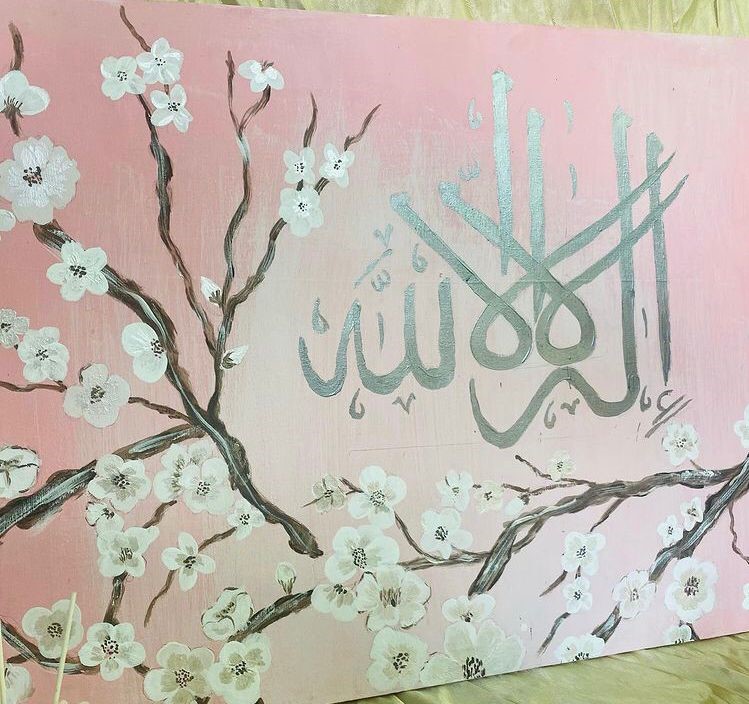 لا إله إلا الله